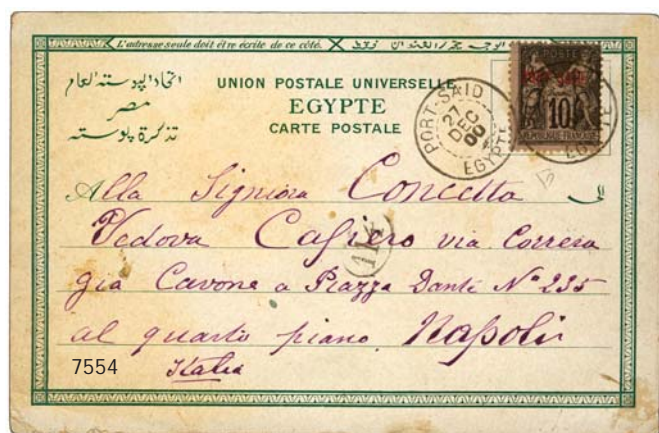 L'adresse seule doit être écrite de ce côté.
اتحاد البوسته العام
مصر
تذكرة بوسته
UNION POSTALE UNIVERSELLE
EGYPTE
CARTE POSTALE
PORT-SAID
27
DEC
00
EGYPTE
10
REPUBLIQUE FRANÇAISE
EGYPTE
Alla Signora Concetta
Vedova Cafiero via Correra
già Cavone a Piazza Dante Nº 235
al quarto piano Napoli
Italia
7554